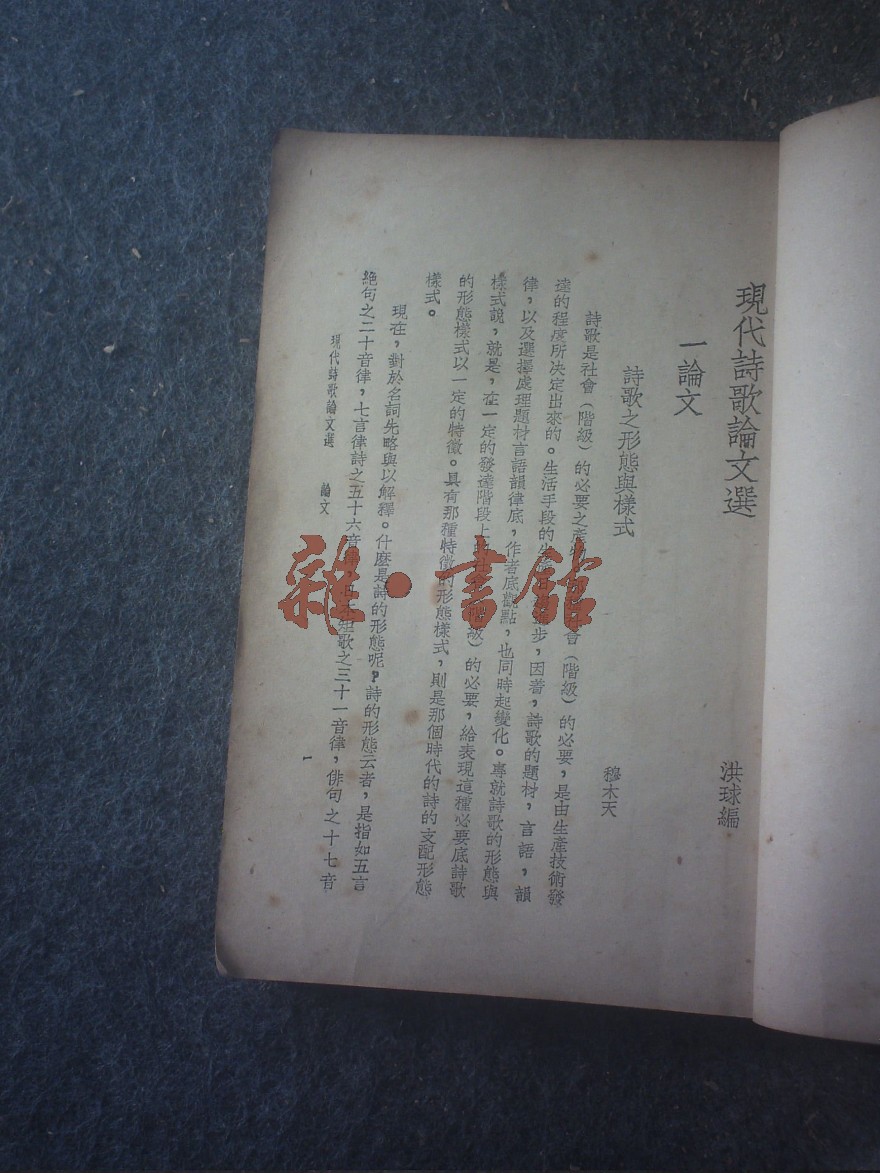 現代詩歌論文選
洪球編
一論文
詩歌之形態與樣式
穆木天
詩歌是社會（階級）的必要之產物會（階級）的必要，是由生產技術發
達的程度所決定出來的。生活手段的生步，因着，詩歌的題材，言語，韻
律，以及選擇處理題材言語韻律底，作者底觀點，也同時起變化。專就詩歌的形態與
樣式說，就是，在一定的發達階段上級）的必要，給表現這種必要底詩歌
的形態樣式以一定的特徵。具有那種特徵的形態樣式，則是那個時代的詩的支配形態
樣式。
現在，對於名詞先略與以解釋。什麼是詩的形態呢？詩的形態云者，是指如五言
絕句之二十音律，七言律詩之五十六音短歌之三十一音律，俳句之十七音
現代詩歌論文選 論文
一
雜·書館